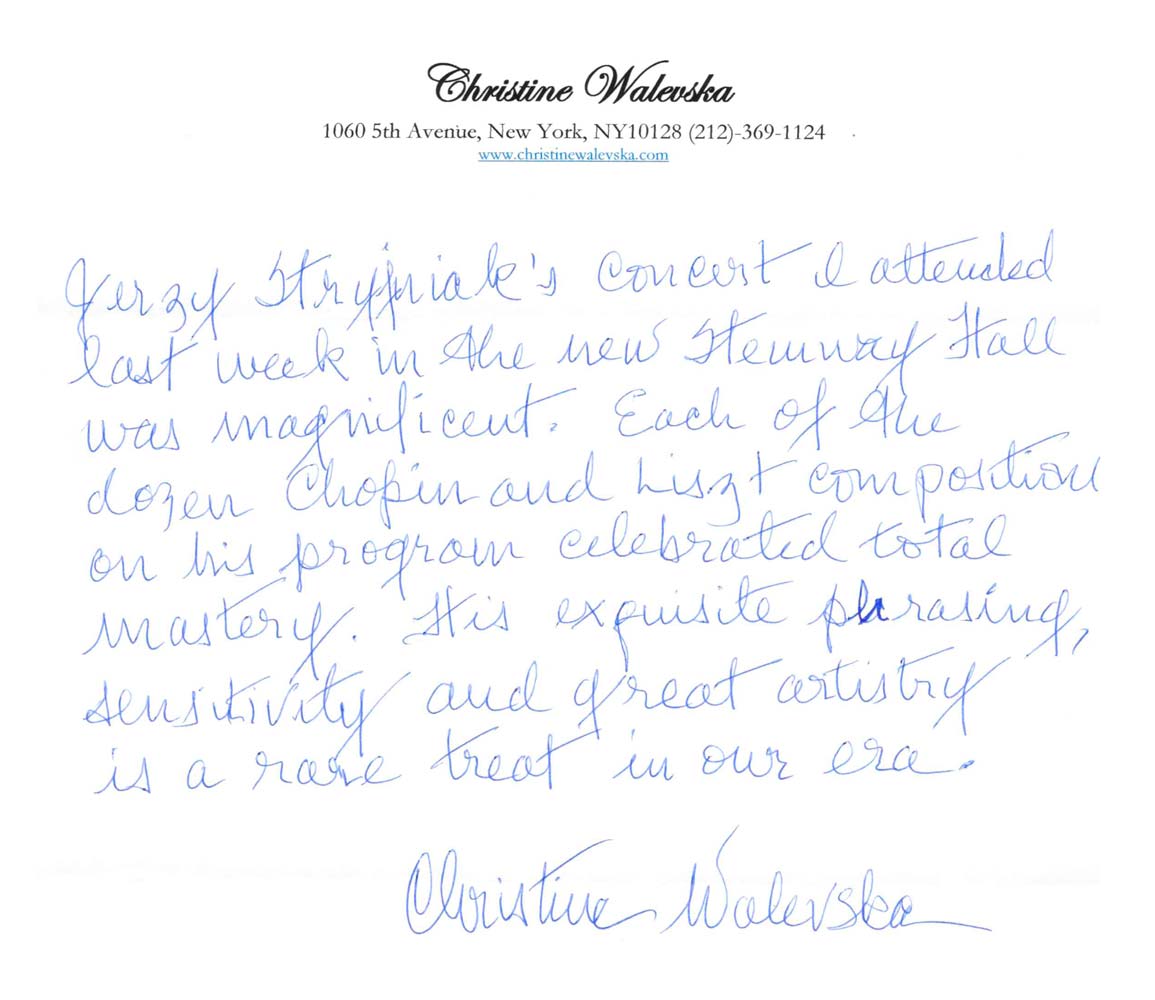 Christine Walevska
1060 5th Avenue, New York, NY10128 (212)-369-1124
www.christinewalevska.com
Jerzy Stryjniak's concert I attended
last week in the new Steinway Hall
was magnificent. Each of the
dozen Chopin and Liszt composition
on his program celebrated total
mastery. His exquisite phrasing,
sensitivity and great artistry
is a rare treat in our era.
Christine Walevska